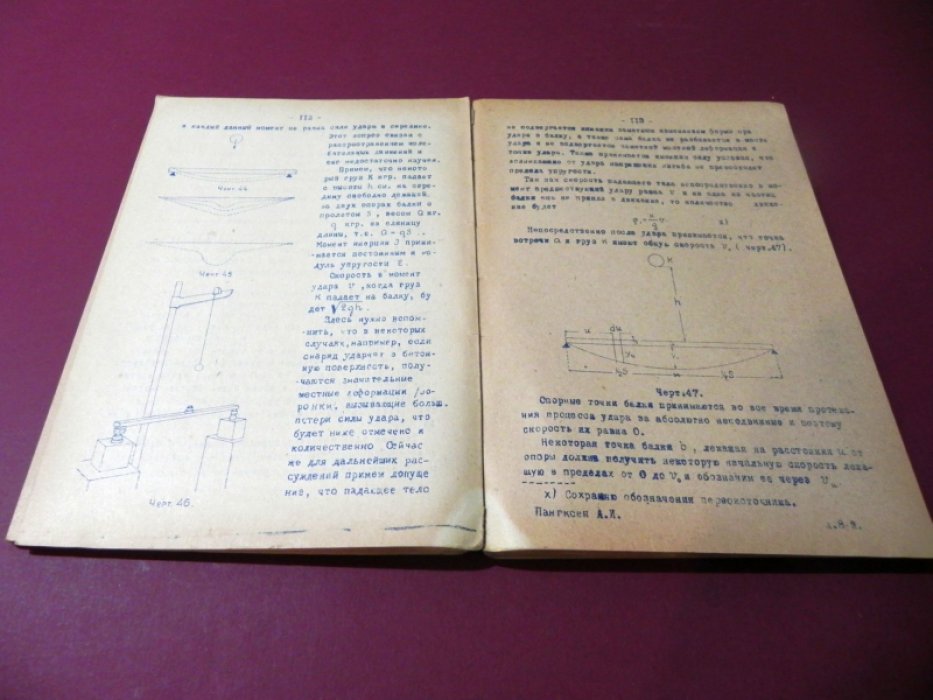 - 112 -
в каждый данный момент не равна силе удара в середине.
Этот вопрос связан с
распространением
движений и
еще недостаточно изучен.
Примем, что некото
рый груз К кгр. падает
с высоты h см. на сере
дину свободно лежащей
на двух опорах балки с
пролетом S, весом Q кг.
q кгр. на единицу
длины, т.е. Q = qS.
Момент инерции J прини-
мается постоянным и мо-
дуль упругости E.
Скорость в момент
удара V, когда груз
К падает на балку, бу
дет √2gh.
Здесь нужно вспом-
нить, что в некоторых
случаях, например, если
снаряд ударяет в бетон-
ную поверхность, полу-
чаются значительные
местные деформации /во-
ронки, вызывающие больш.
потери силы удара, что
будет ниже отмечено и
количественно Сейчас
же для дальнейших рас-
суждений примем допуще
ние, что падающее тело
Черт.44
Черт 45
Черт. 46.
- 113 -
не подвергается никаким заметным изменениям формы при
ударе о балку, а также сама балка не разбивается в месте
удара и не подвергается заметной местной деформации в
точке удара. Также принимается имеющим силу условие, что
от удара напряжения изгиба не превосходят
предела упругости.
Так как скорость падающего тела непосредственно в мо-
мент предшествующий удару равна V и ни одна из частиц
балки еще не пришла в движение, то количество движе-
ния будет
x)
Непосредственно после удара принимается, что точка
встречи a и груз К имеют общую скорость V₀ ( черт.47).
К
h
u
du
½S
½S
Черт.47.
Опорные точки балки принимаются во все время протека-
ния процесса удара за абсолютно неподвижные и поэтому
скорость их равна 0.
Некоторая точка балки b, лежащая на расстоянии u от
опоры должна получить некоторую начальную скорость лежа-
щую в пределах от 0 до V₀ и обозначим ее через Vᵤ
x) Сохраняю обозначения первоисточника.
А.И.